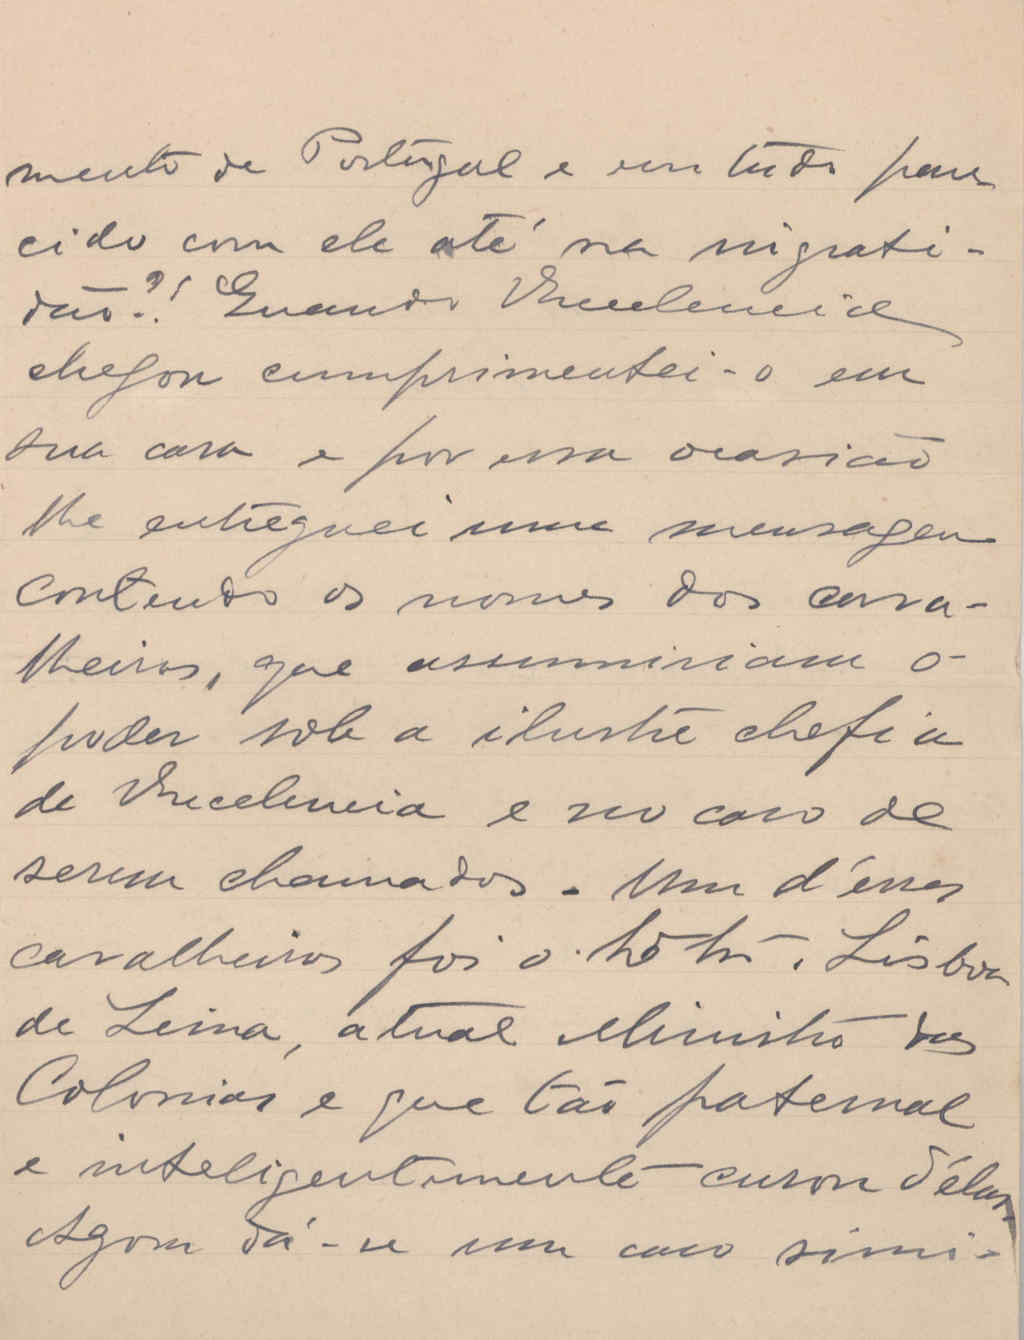 mento de Portugal e em tudo pare
cido com ele até na ingrati-
dão?! Quando Vexcelencia
chegou cumprimentei-o em
sua casa e por essa ocasião
lhe entreguei uma mensagem
contendo os nomes dos cava-
lheiros, que assumiriam o
poder sob a ilustre chefia
de Vexcelencia e no caso de
serem chamados. Um d'esses
cavalheiros foi o Lisboa
de Lima, atual Ministro das
Colonias e que tão paternal
e inteligentemente curou d'elas.
Agora dá-se um caso simi-